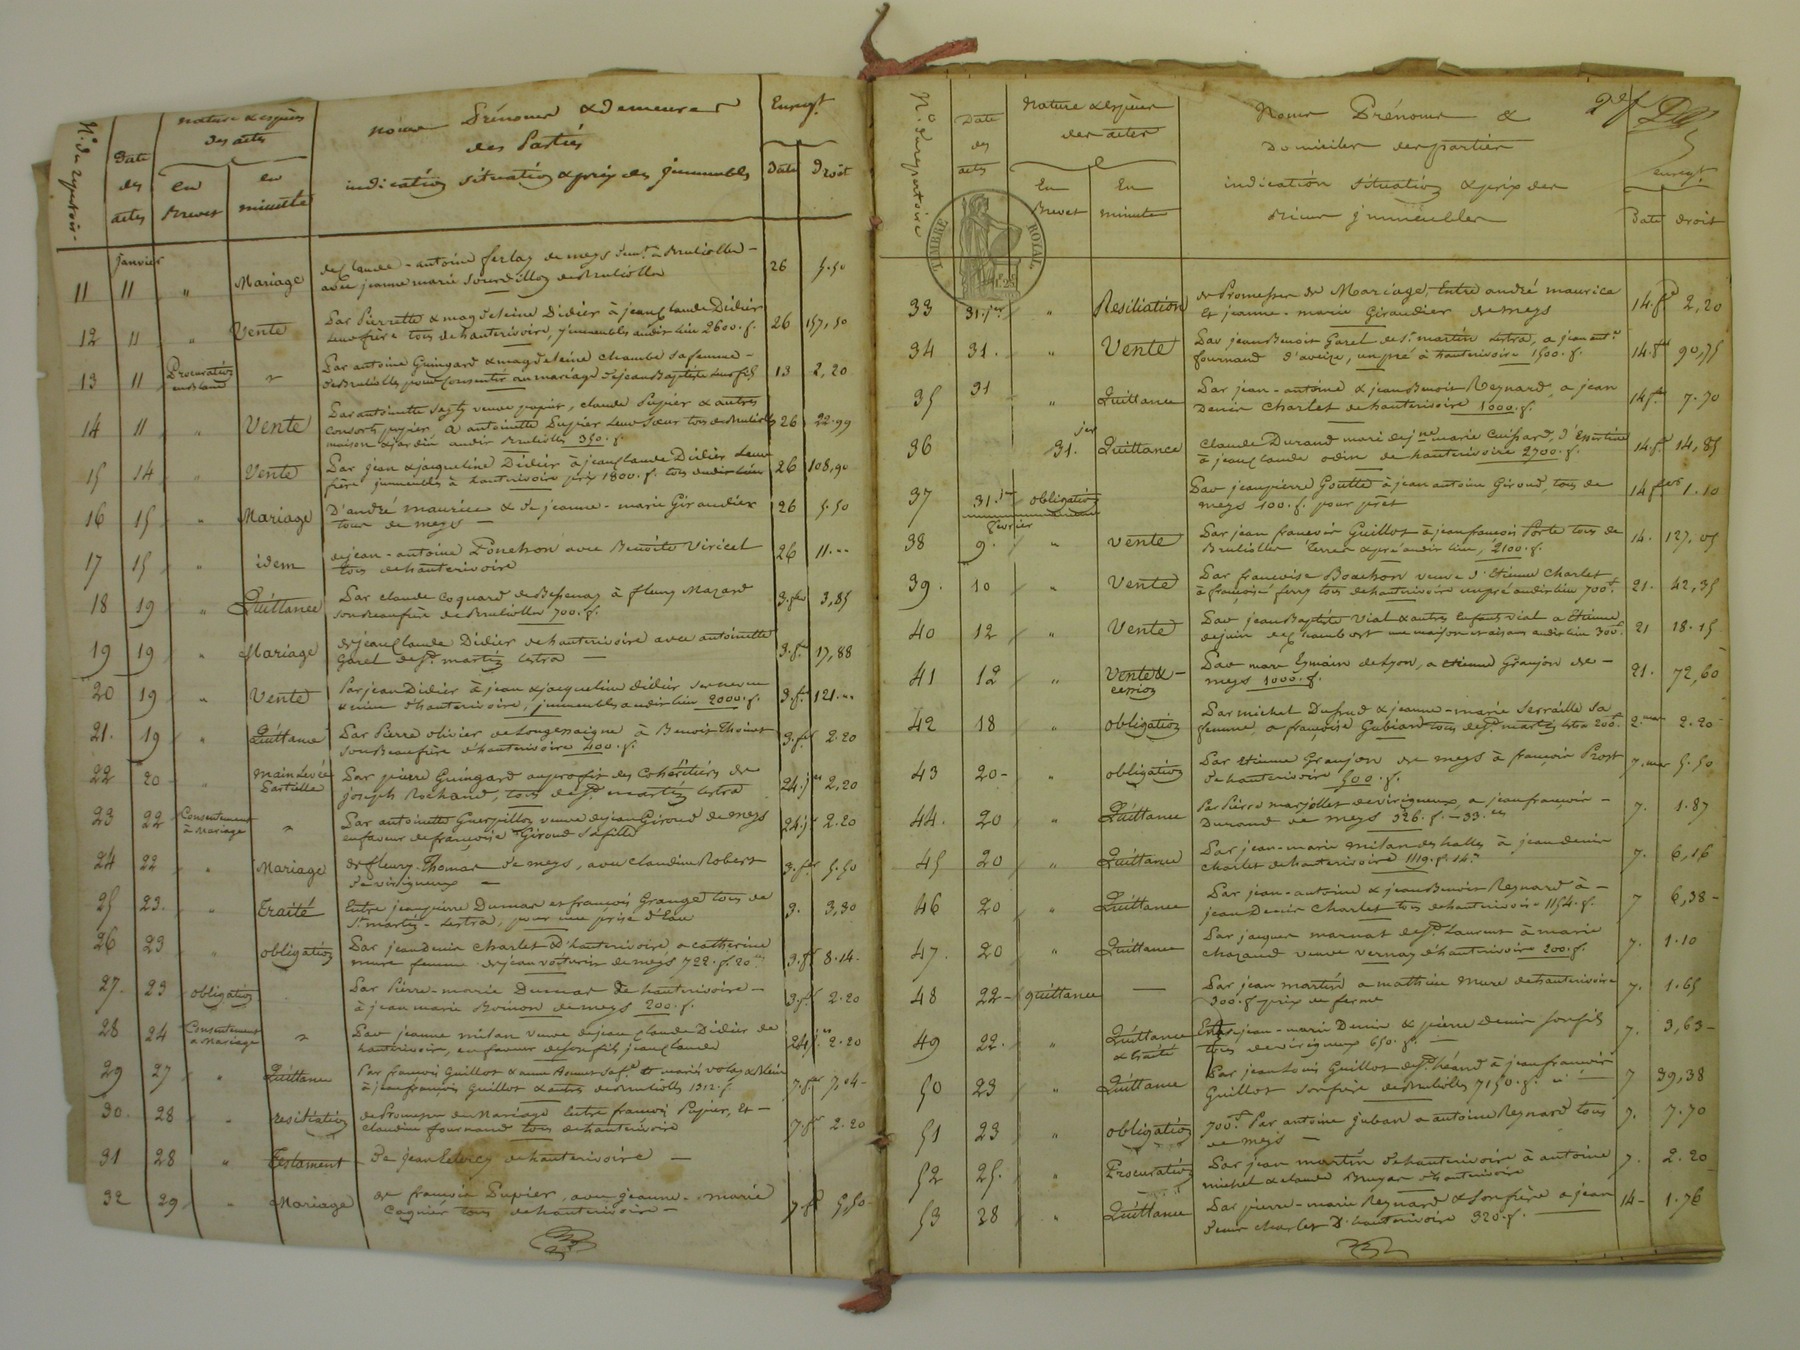 N.° du repertoire
Date des actes
nature & espèces des actes
en Brevet
en minutte
noms Prénoms & demeures
des Parties
indication situation & prix des jmmeubles
Enregt.
Date
Droit
janvier
11 11 " Mariage de Claude-antoine ferlay de meys demt. à Brullioles - 26 5.50
avec jeanne marie de Brullioles
12 11 " Vente Par Pierrette & magdeleine Didier à jean Claude Didier 26 157,50
leur frère tous de hauterivoire, jmmeubles audit lieu 2600.f.
13 11 Procuration en Blanc " Par antoine Guingard & magdeleine chambe sa femme - 13 2,20
de Brullioles, pour Consentir au mariage de jean Baptiste leur fils
14 11 " Vente Par antoinette veuve pupier, claude Pupier & autres 26 22.99
consorts pupier, à antoinette Pupier leur sœur tous de Brullioles
maison & jardin audit Brullioles 350.f.
15 14 " Vente Par jean & jacqueline Didier à jean Claude Didier leur 26 108,90
frère jmmeubles à hauterivoire prix 1800.f. tous dudit lieu
16 15 " Mariage D'andré maurice & de jeanne-marie Giraudier 26 5.50
tous de meys -
17 15 " idem de jean-antoine Ponchon avec Benoite Viricel 26 11."
tous de hauterivoire
18 19 " Quittance Par claude Coquard de Bessenay à fleury Mazard 3.fer 3,85
son Beaufrère de Brullioles 700.f.
19 19 " Mariage de jean Claude Didier de hauterivoire avec antoinette 3.fr 17,88
Garel de St. martin lestra -
20 19 " Vente Par jean Didier à jean & jacqueline didier ses neveu 3.fr 121."
& nièce d'hauterivoire, jmmeubles audit lieu 2000.f.
21. 19 " Quittance Par Pierre olivier de Longessaigne à Benoit Thivot 3.fr 2.20
son Beaufrère d'hauterivoire 400.f.
22 20 " mainlevée Partielle Par pierre Guingard au profit des Cohéritiers de 24.jer 2,20
joseph Rochand, tous de St. martin lestra
23 22 Consentement à Mariage " Par antoinette Guerpillon veuve de jean Giroud de meys 24.jr 2.20
en faveur de françoise Giroud sa fille
24 22 " Mariage de fleury Thomas de meys, avec claudine Robert 3.fer 5.50
de virigneux -
25 23. " Traité Entre jean pierre Dumas et françois Grange tous de 3. 3,30
St. martin-lestra, pour une prise d'Eau
26 23 " obligation Par jean Denis charlet d'hauterivoire, a catherine 3.fr 8.14.
mure femme de jean de meys 722.f.20c.
27. 23 obligation Par Pierre-marie Dumas de hauterivoire - 3.fr 2.20
à jean marie Boinon de meys 200.f.
28 24 Consentement a Mariage " Par jeanne milan veuve de jean Claude Didier de 24j. 2.20
hauterivoire, en faveur de son fils jean claude
29 27 " Quittance Par françois Guillot & anne sa fe. 7.fer 7.04-
à jean françois Guillot & autres de Brullioles 1312.f.
30. 28 " resiliation de Promesse de Mariage Entre françois Pupier, Et - 7.fr 2.20
claudine fournand tous de hauterivoire
31 28 " Testament De jean de hauterivoire -
32 29 " Mariage de françois Pupier, avec jeanne-marie 7.fr 5,50-
Cognier tous de hauterivoire -
N.° du repertoire
Date des actes
nature & espèces des actes
En Brevet
En minutte
Noms Prénoms &
Domiciles des parties
indication situation & prix des
Biens jmmeubles
2e f
Enregt.
Date
Droit
TIMBRE ROYAL
33 31.jer " Resiliation de Promesse de Mariage, Entre andré maurice 14.fr 2,20
Et jeanne-marie Giraudier de meys
34 31. " Vente Par jean Benoit Garel de St. martin lestra, a jean ant.e 14.fr 90,75
fournand d'aveize, un pré à hauterivoire 1500.f.
35 31 " Quittance Par jean-antoine & jean Benoit Reynard, a jean 14fer 7.70
Denis Charlet de hauterivoire 1000.f.
36 31.jer Quittance Claude Durand mari de jne marie Cuissard, d'Essertine 14.f. 14,85
à jean Claude odin de hauterivoire 2700.f.
37 31.jer obligation Par jean pierre Goutte à jean antoine Giroud, tous de 14 fer 1.10
meys 100.f. pour prêt
février
38 9. " vente Par jean françois Guillot à jean françois Porte tous de 14. 127.05
Brullioles Terres & prés audit lieu, 2100.f.
39. 10 " Vente Par françoise Bouchon veuve d'Etienne Charlet 21. 42,35
à françoise ferry tous de hauterivoire un pré audit lieu 700f.
40 12 " Vente Par jean Baptiste Vial & autres Enfants vial a Etienne 21 18.15
dejuin de Chambost une maison et aisances audit lieu 300f.
41 12 " Vente & cession Par marc Esmain de Lyon, a Etienne Granjon de - 21. 72,60
meys 1000.f.
42 18 " obligation Par michel Dufrud & jeanne-marie Serraille sa 2.mars 2.20
femme, a françoise Gubiand tous de St. martin lestra 200f.
43 20- " obligation Par Etienne Granjon de meys à françois Prost 7.mar 5.50
de hauterivoire 500.f.
44. 20 " Quittance Par Pierre marjollet de virigneux, a jean françois - 7. 1.87
Durand de meys 326.f.-33.c
45 20 " Quittance Par jean-marie milan des halles à jean denis 7. 6,16
charlet de hauterivoire 1119.f.14c.
46 20 " Quittance Par jean-antoine & jean Benoit Reynard à - 7 6,38-
jean Denis Charlet tous de hauterivoire 1154.f.
47. 20 " Quittance Par jacques marnat de St. Laurent à marie 7. 1.10
chazaud veuve vernay d'hauterivoire 200.f.
48 22- quittance — Par jean martin a mathieu mure de hauterivoire 7. 1.65
300.f. prix de ferme
49 22. " Quittance & traité Entre jean-marie Denis & pierre denis son fils 7. 3,63-
tous de virigneux 650.f.
50 23 " Quittance Par jean Louis Guillot de St. héand à jean françois 7 39,38
Guillot son frère de Brullioles 7150.f.
51 23 " obligation 700f. Par antoine juban a antoine Reynard tous 7. 7.70
de meys -
52 25. " Procuration Par jean martin d'hauterivoire à antoine 7. 2.20
michel & claude Bruyas d'hauterivoire
53 28 " Quittance Par pierre-marie Reynard & son frère a jean 14- 1.76
denis charlet D'hauterivoire 320.f.